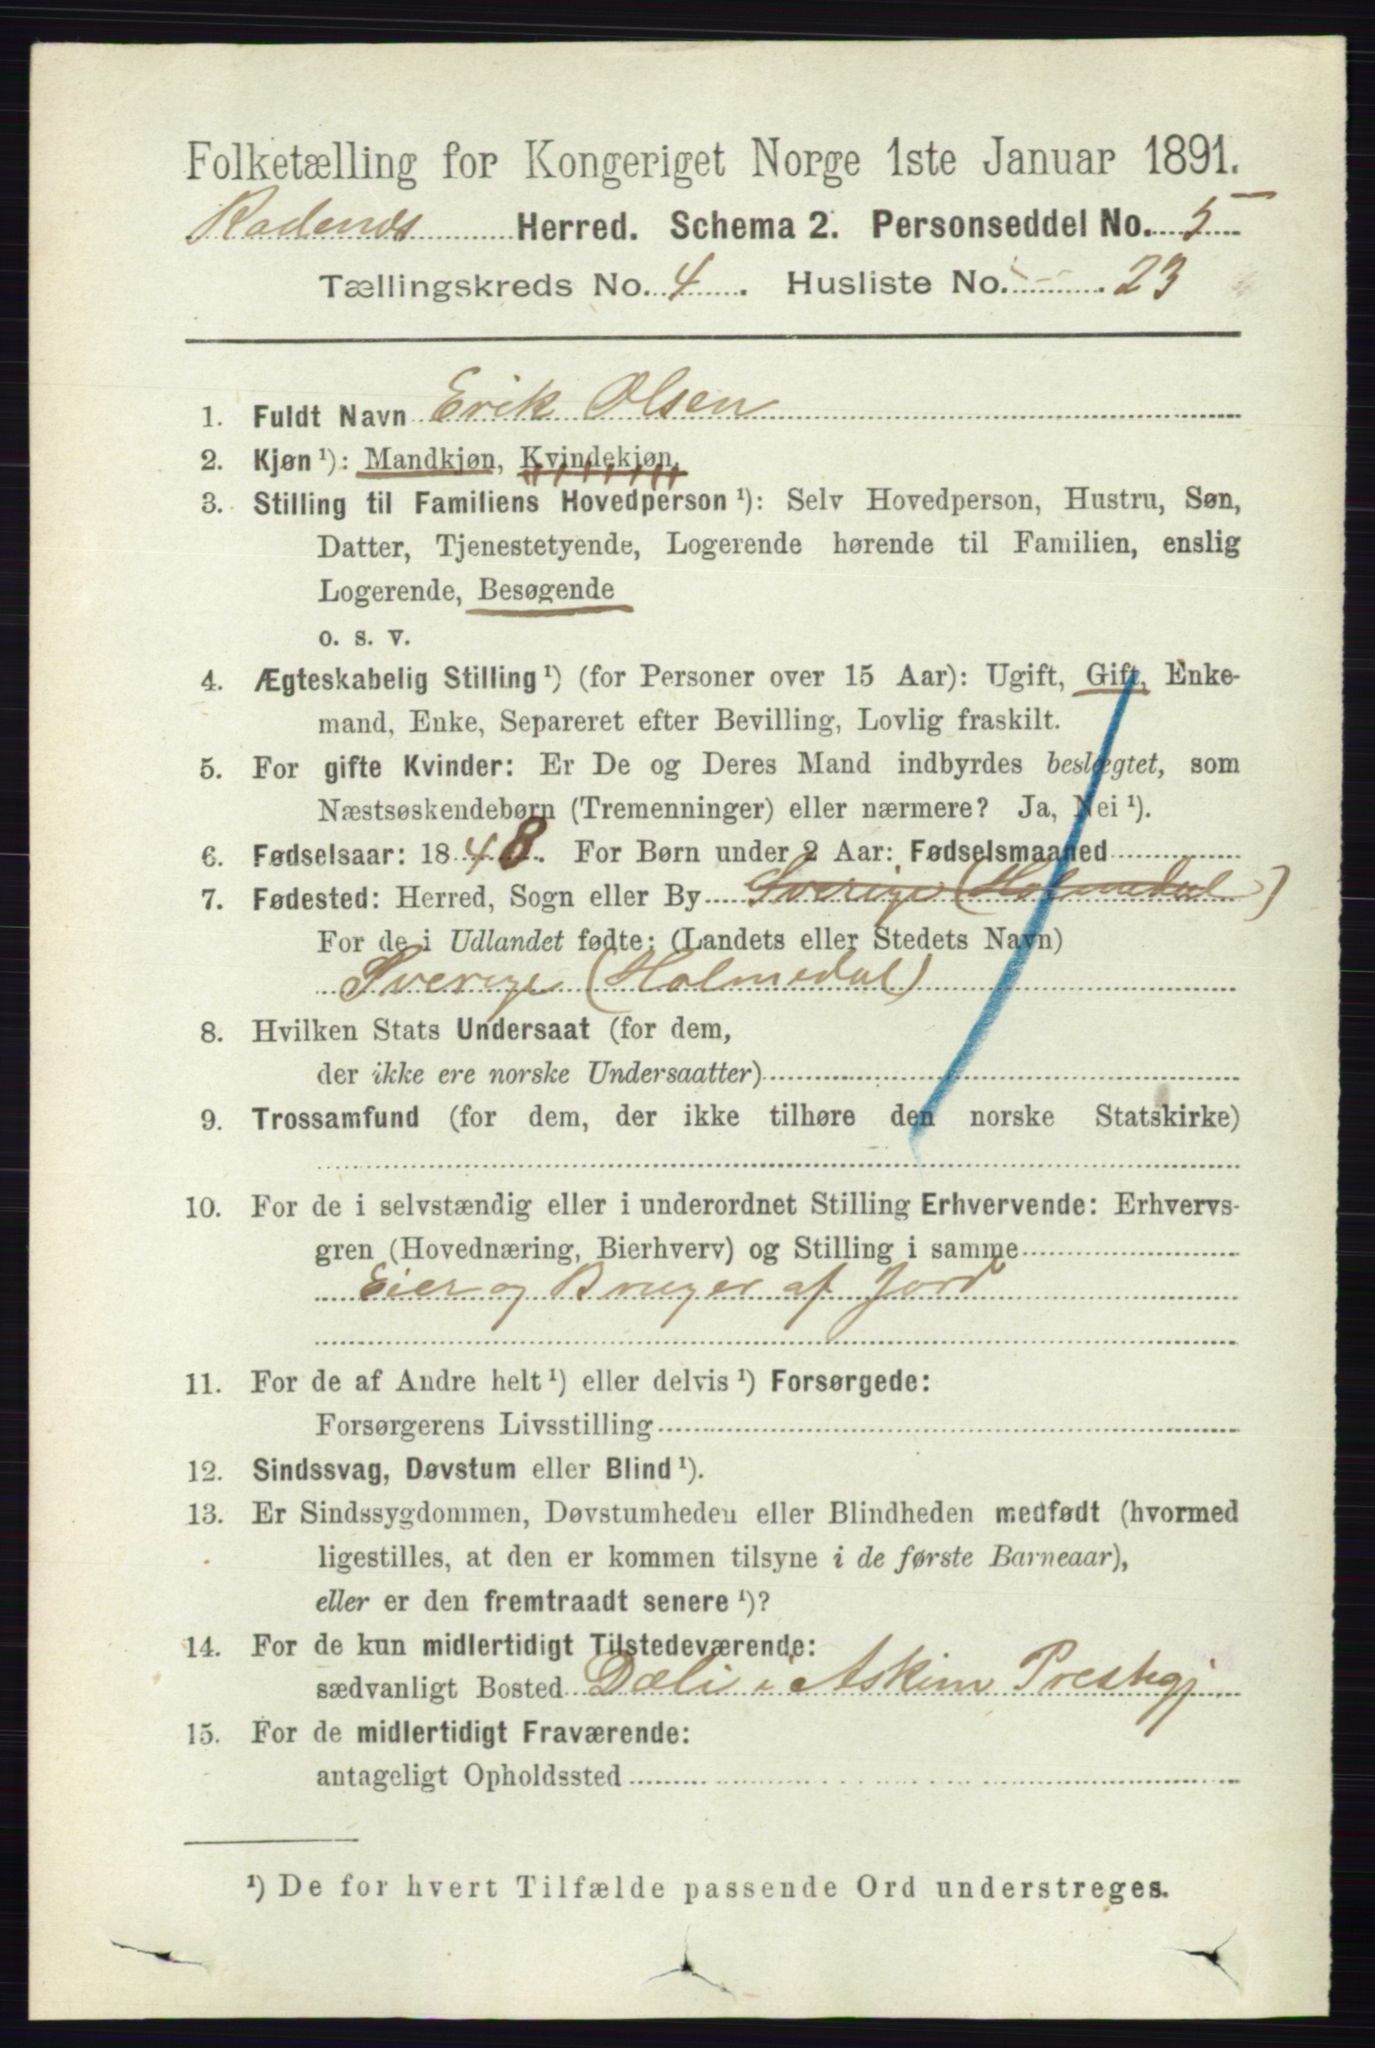 Folketælling for Kongeriget Norge 1ste Januar 1891.
Rødenæs Herred. Schema 2. Personseddel No. 5
Tællingskreds No. 4. Husliste No. 23
1. Fuldt Navn Erik Olsen
2. Kjøn ¹): Mandkjøn, Kvindekjøn.
3. Stilling til Familiens Hovedperson ¹): Selv Hovedperson, Hustru, Søn,
Datter, Tjenestetyende, Logerende hørende til Familien, enslig
Logerende, Besøgende
o. s. v.
4. Ægteskabelig Stilling ¹) (for Personer over 15 Aar): Ugift, Gift, Enke-
mand, Enke, Separeret efter Bevilling, Lovlig fraskilt.
5. For gifte Kvinder: Er De og Deres Mand indbyrdes beslægtet, som
Næstsøskendebørn (Tremenninger) eller nærmere? Ja, Nei ¹).
6. Fødselsaar: 1848. For Børn under 2 Aar: Fødselsmaaned
7. Fødested: Herred, Sogn eller By Sverige (Holmedal)
For de i Udlandet fødte: (Landets eller Stedets Navn)
Sverige (Holmedal)
8. Hvilken Stats Undersaat (for dem,
der ikke ere norske Undersaatter)
9. Trossamfund (for dem, der ikke tilhøre den norske Statskirke)
10. For de i selvstændig eller i underordnet Stilling Erhvervende: Erhvervs-
gren (Hovednæring, Bierhverv) og Stilling i samme
Eier og Bruger af Jord
11. For de af Andre helt ¹) eller delvis ¹) Forsørgede:
Forsørgerens Livsstilling
12. Sindssvag, Døvstum eller Blind ¹).
13. Er Sindssygdommen, Døvstumheden eller Blindheden medfødt (hvormed
ligestilles, at den er kommen tilsyne i de første Barneaar),
eller er den fremtraadt senere ¹)?
14. For de kun midlertidigt Tilstedeværende:
sædvanligt Bosted Dæli i Askim Prestegj.
15. For de midlertidigt Fraværende:
antageligt Opholdssted
¹) De for hvert Tilfælde passende Ord understreges.